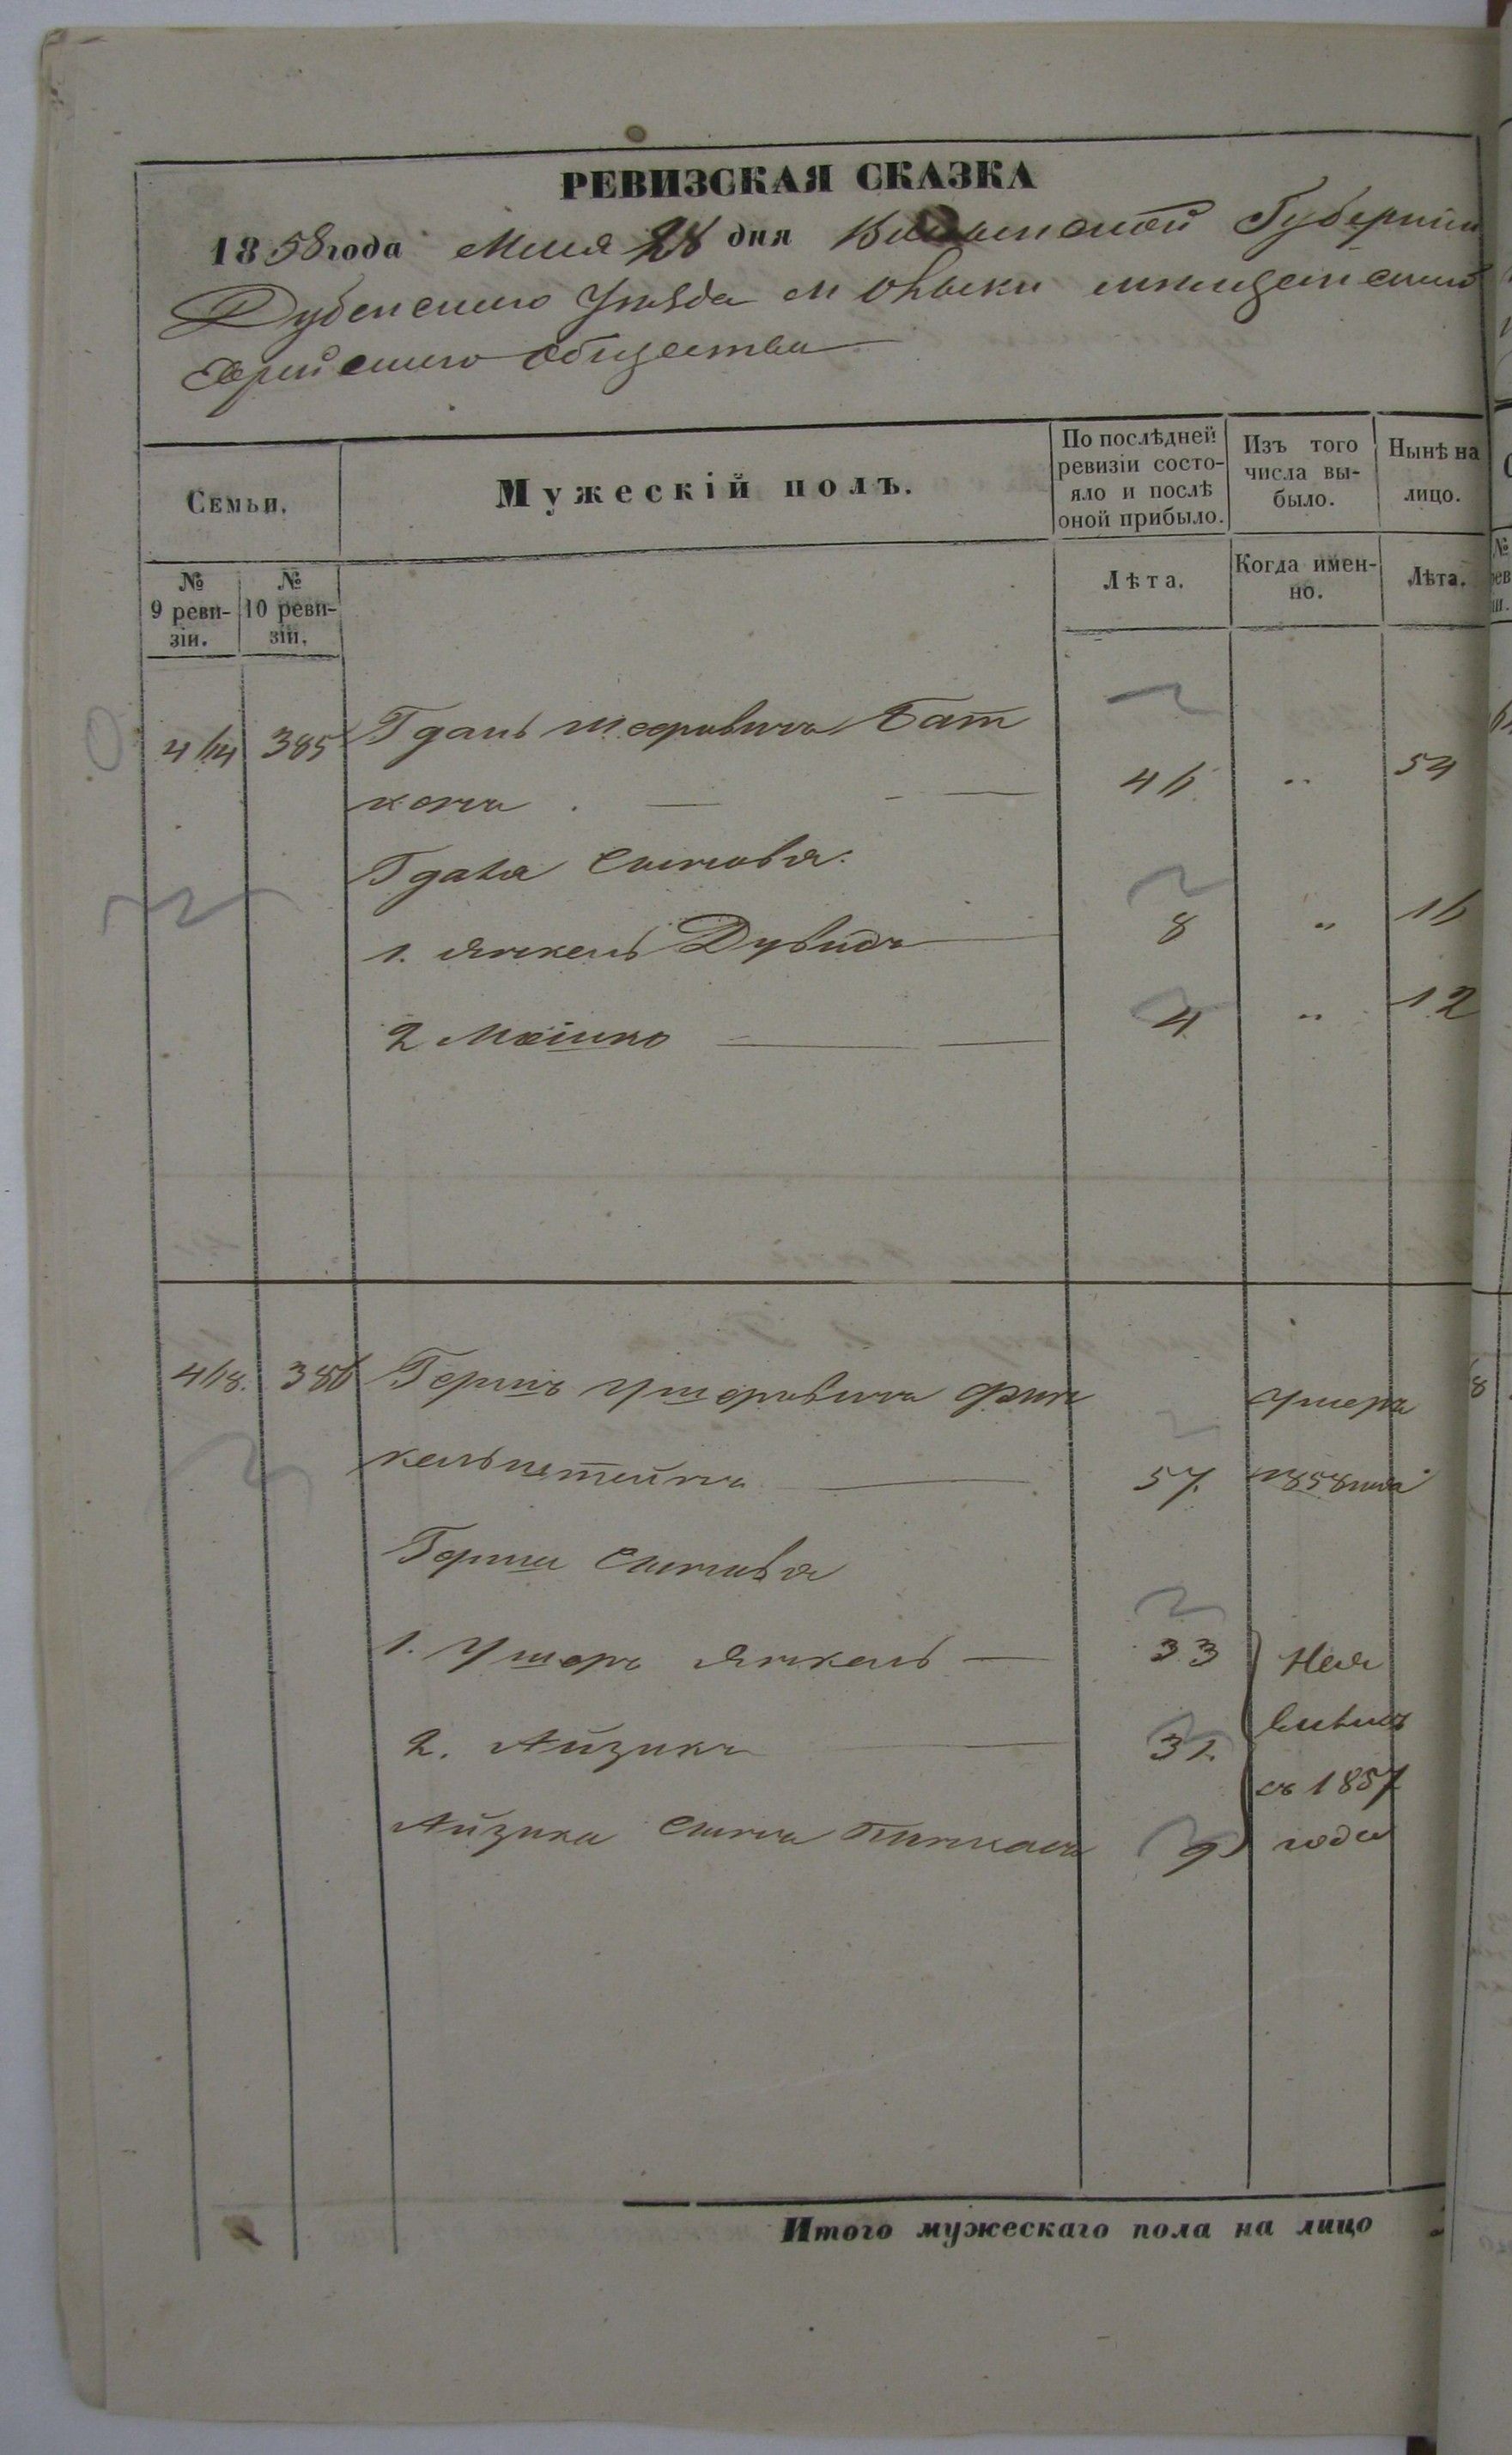 РЕВИЗСКАЯ СКАЗКА
1858 года Мая 28 дня Волынской Губерніи
Дубенскаго Уѣзда м Олыки мѣщанскаго
Еврейскаго общества
Семьи.
Мужескій полъ.
По послѣдней ревизіи состояло и послѣ оной прибыло.
Изъ того числа выбыло.
Нынѣ на лицо.
№ 9 ревизіи.
№ 10 ревизіи.
Лѣта.
Когда именно.
Лѣта.
385 Гдаль Бат
46 " 54
Гдаля Сыновья.
1. Янкель Дувидъ 8 " 16
2 Мошко 4 " 12
386 Гершъ Ушеровичъ Фин
Умеръ
кельштейнъ 57. 1858 года
Герша Сыновья
1. Ушеръ Янкель 33
Нея
2. Айзикъ 31.
вились
съ 1857
Айзика Сынъ Пинкасъ 9 года
Итого мужескаго пола на лицо